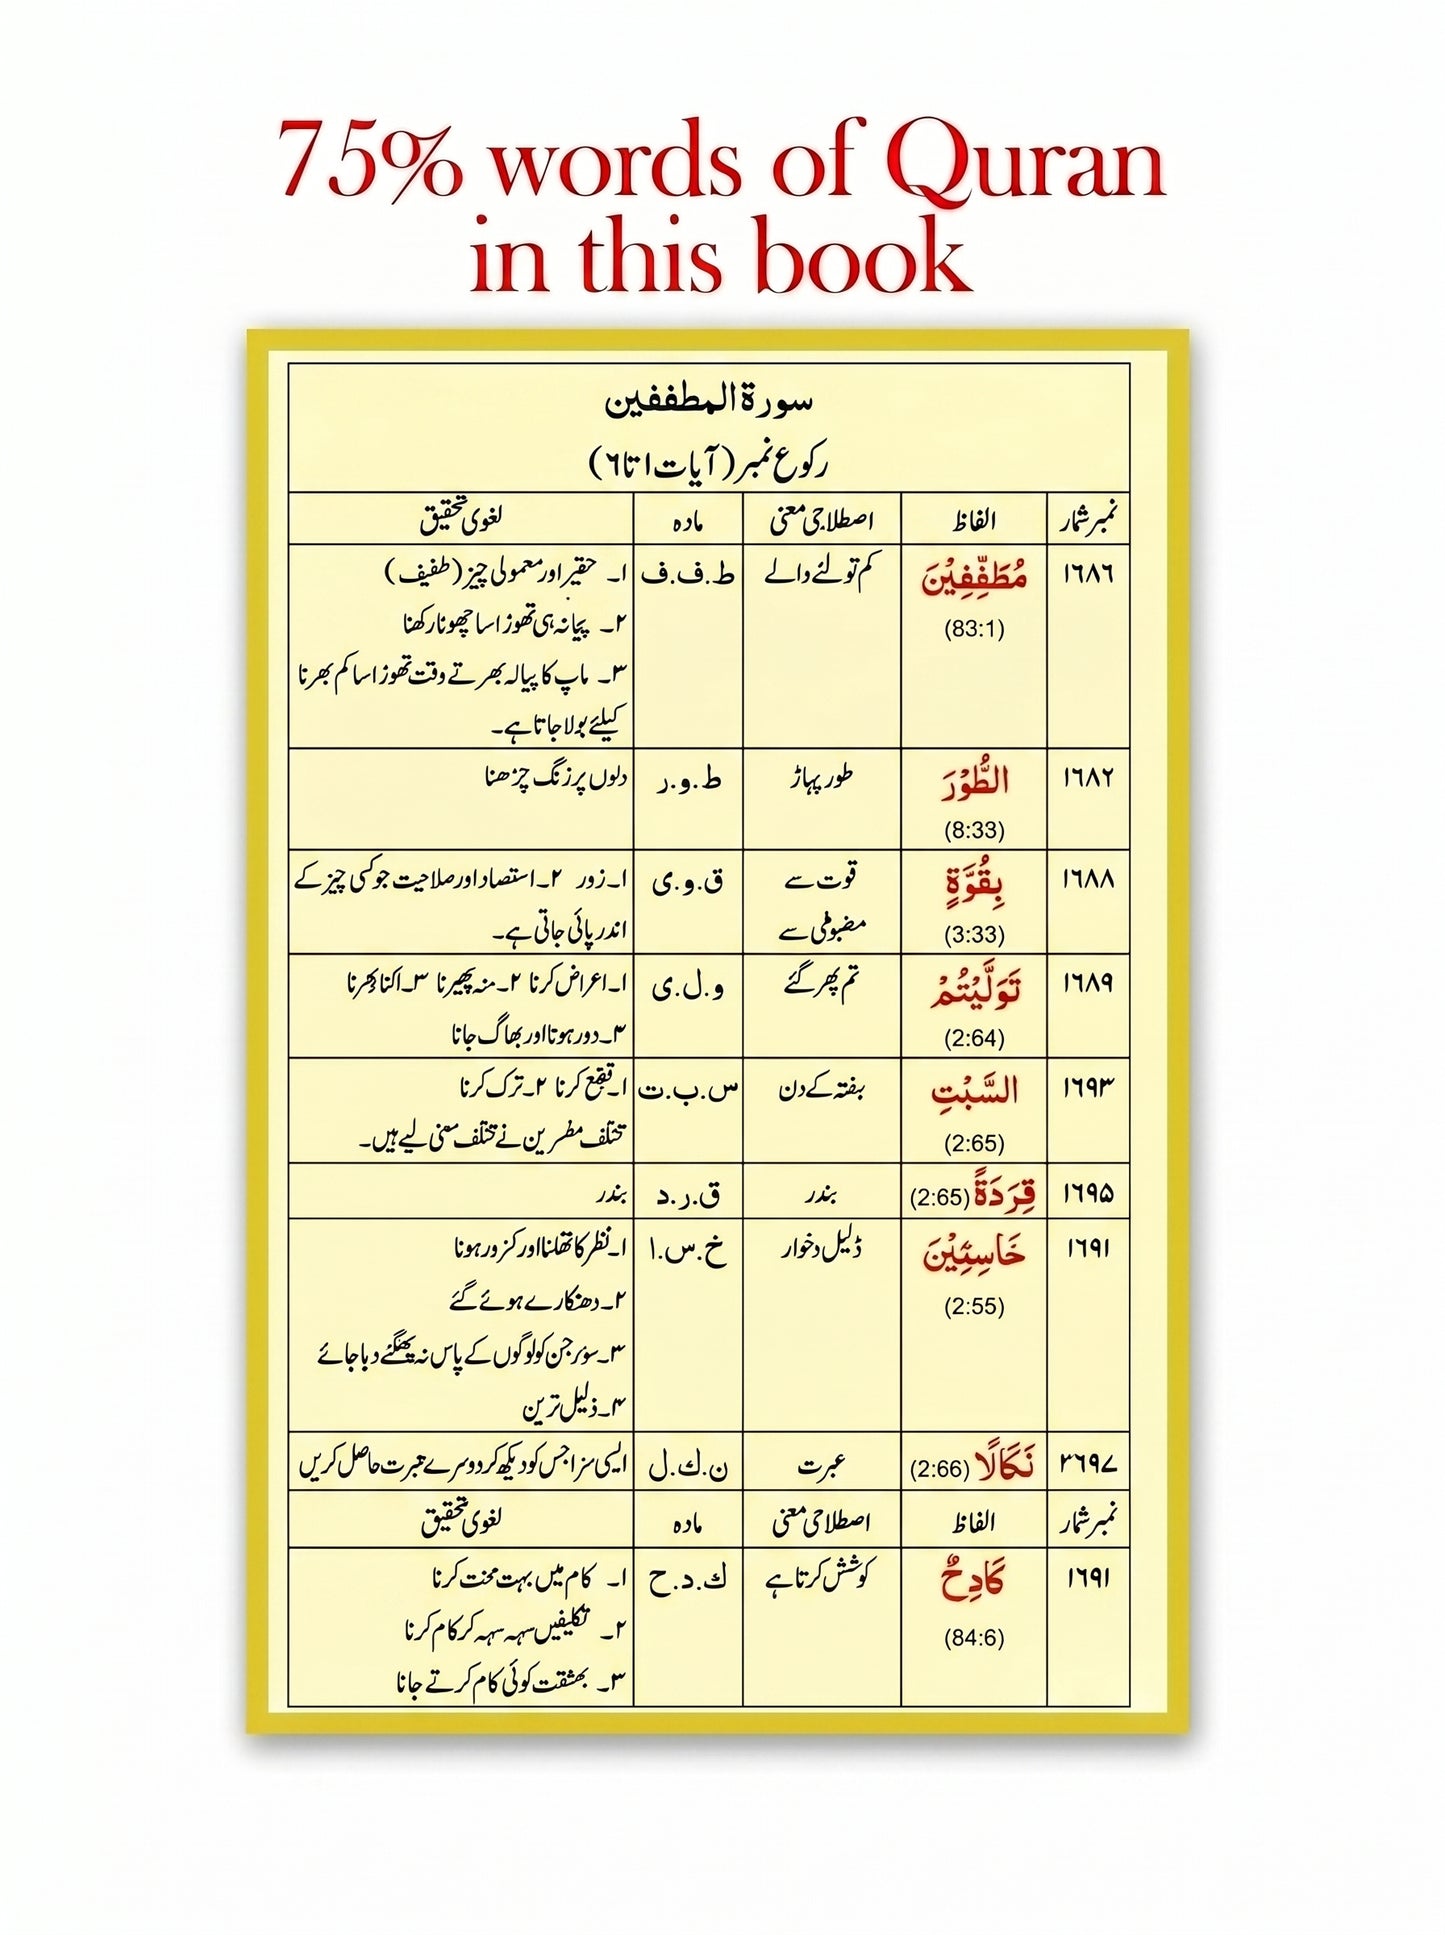 75% words of Quran
in this book
سورة المطففين
رکوع نمبر (آیات ۱ تا ٦)
نمبر شمار	الفاظ	اصطلاحی معنی	مادہ	لغوی تحقیق
١٦٨٦	مُطَفِّفِيْنَ	کم تولنے والے	ط.ف.ف	۱۔ حقیر اور معمولی چیز (طفیف)
(83:1)	۲۔ پیمانہ ہی تھوڑا سا چھوٹا رکھنا
۳۔ ماپ کا پیالہ بھرتے وقت تھوڑا سا کم بھرنا
کیلئے بولا جاتا ہے۔
١٦٨٢	الطُّوْرَ	طور پہاڑ	ط.و.ر	دلوں پر زنگ چڑھنا
(8:33)
١٦٨٨	بِقُوَّةٍ	قوت سے	ق.و.ی	۱۔ زور ۲۔ استصاد اور صلاحیت جو کسی چیز کے
(3:33)	مضبوطی سے	اندر پائی جاتی ہے۔
١٦٨٩	تَوَلَّيْتُمْ	تم پھر گئے	و.ل.ی	۱۔ اعراض کرنا ۲۔ منہ پھیرنا ۳۔
(2:64)	۳۔ دور ہونا اور بھاگ جانا
١٦٩٣	السَّبْتِ	ہفتہ کے دن	س.ب.ت	۱۔ کرنا ۲۔ ترک کرنا
(2:65)	نے معنی لیے ہیں۔
١٦٩٥	قِرَدَةً (2:65)	بندر	ق.ر.د	بندر
١٦٩١	خَاسِئِيْنَ	ذلیل و خوار	خ.س.ا	۱۔ نظر کا تھلنا اور کزور ہونا
(2:55)	۲۔ دھتکارے ہوئے گئے
۳۔ سؤر جن کو لوگوں کے پاس نہ دبا جائے
۴۔ ذلیل ترین
٣٦٩٧	نَكَالًا (2:66)	عبرت	ن.ك.ل	ایسی سزا جس کو دیکھ کر دوسرے عبرت حاصل کریں
نمبر شمار	الفاظ	اصطلاحی معنی	مادہ	لغوی تحقیق
١٦٩١	كَادِحٌ	کوشش کرتا ہے	ك.د.ح	۱۔ کام میں بہت محنت کرنا
(84:6)	۲۔ تکلیفیں سہہ سہہ کر کام کرنا
۳۔ بمشقت کوئی کام کرتے جانا